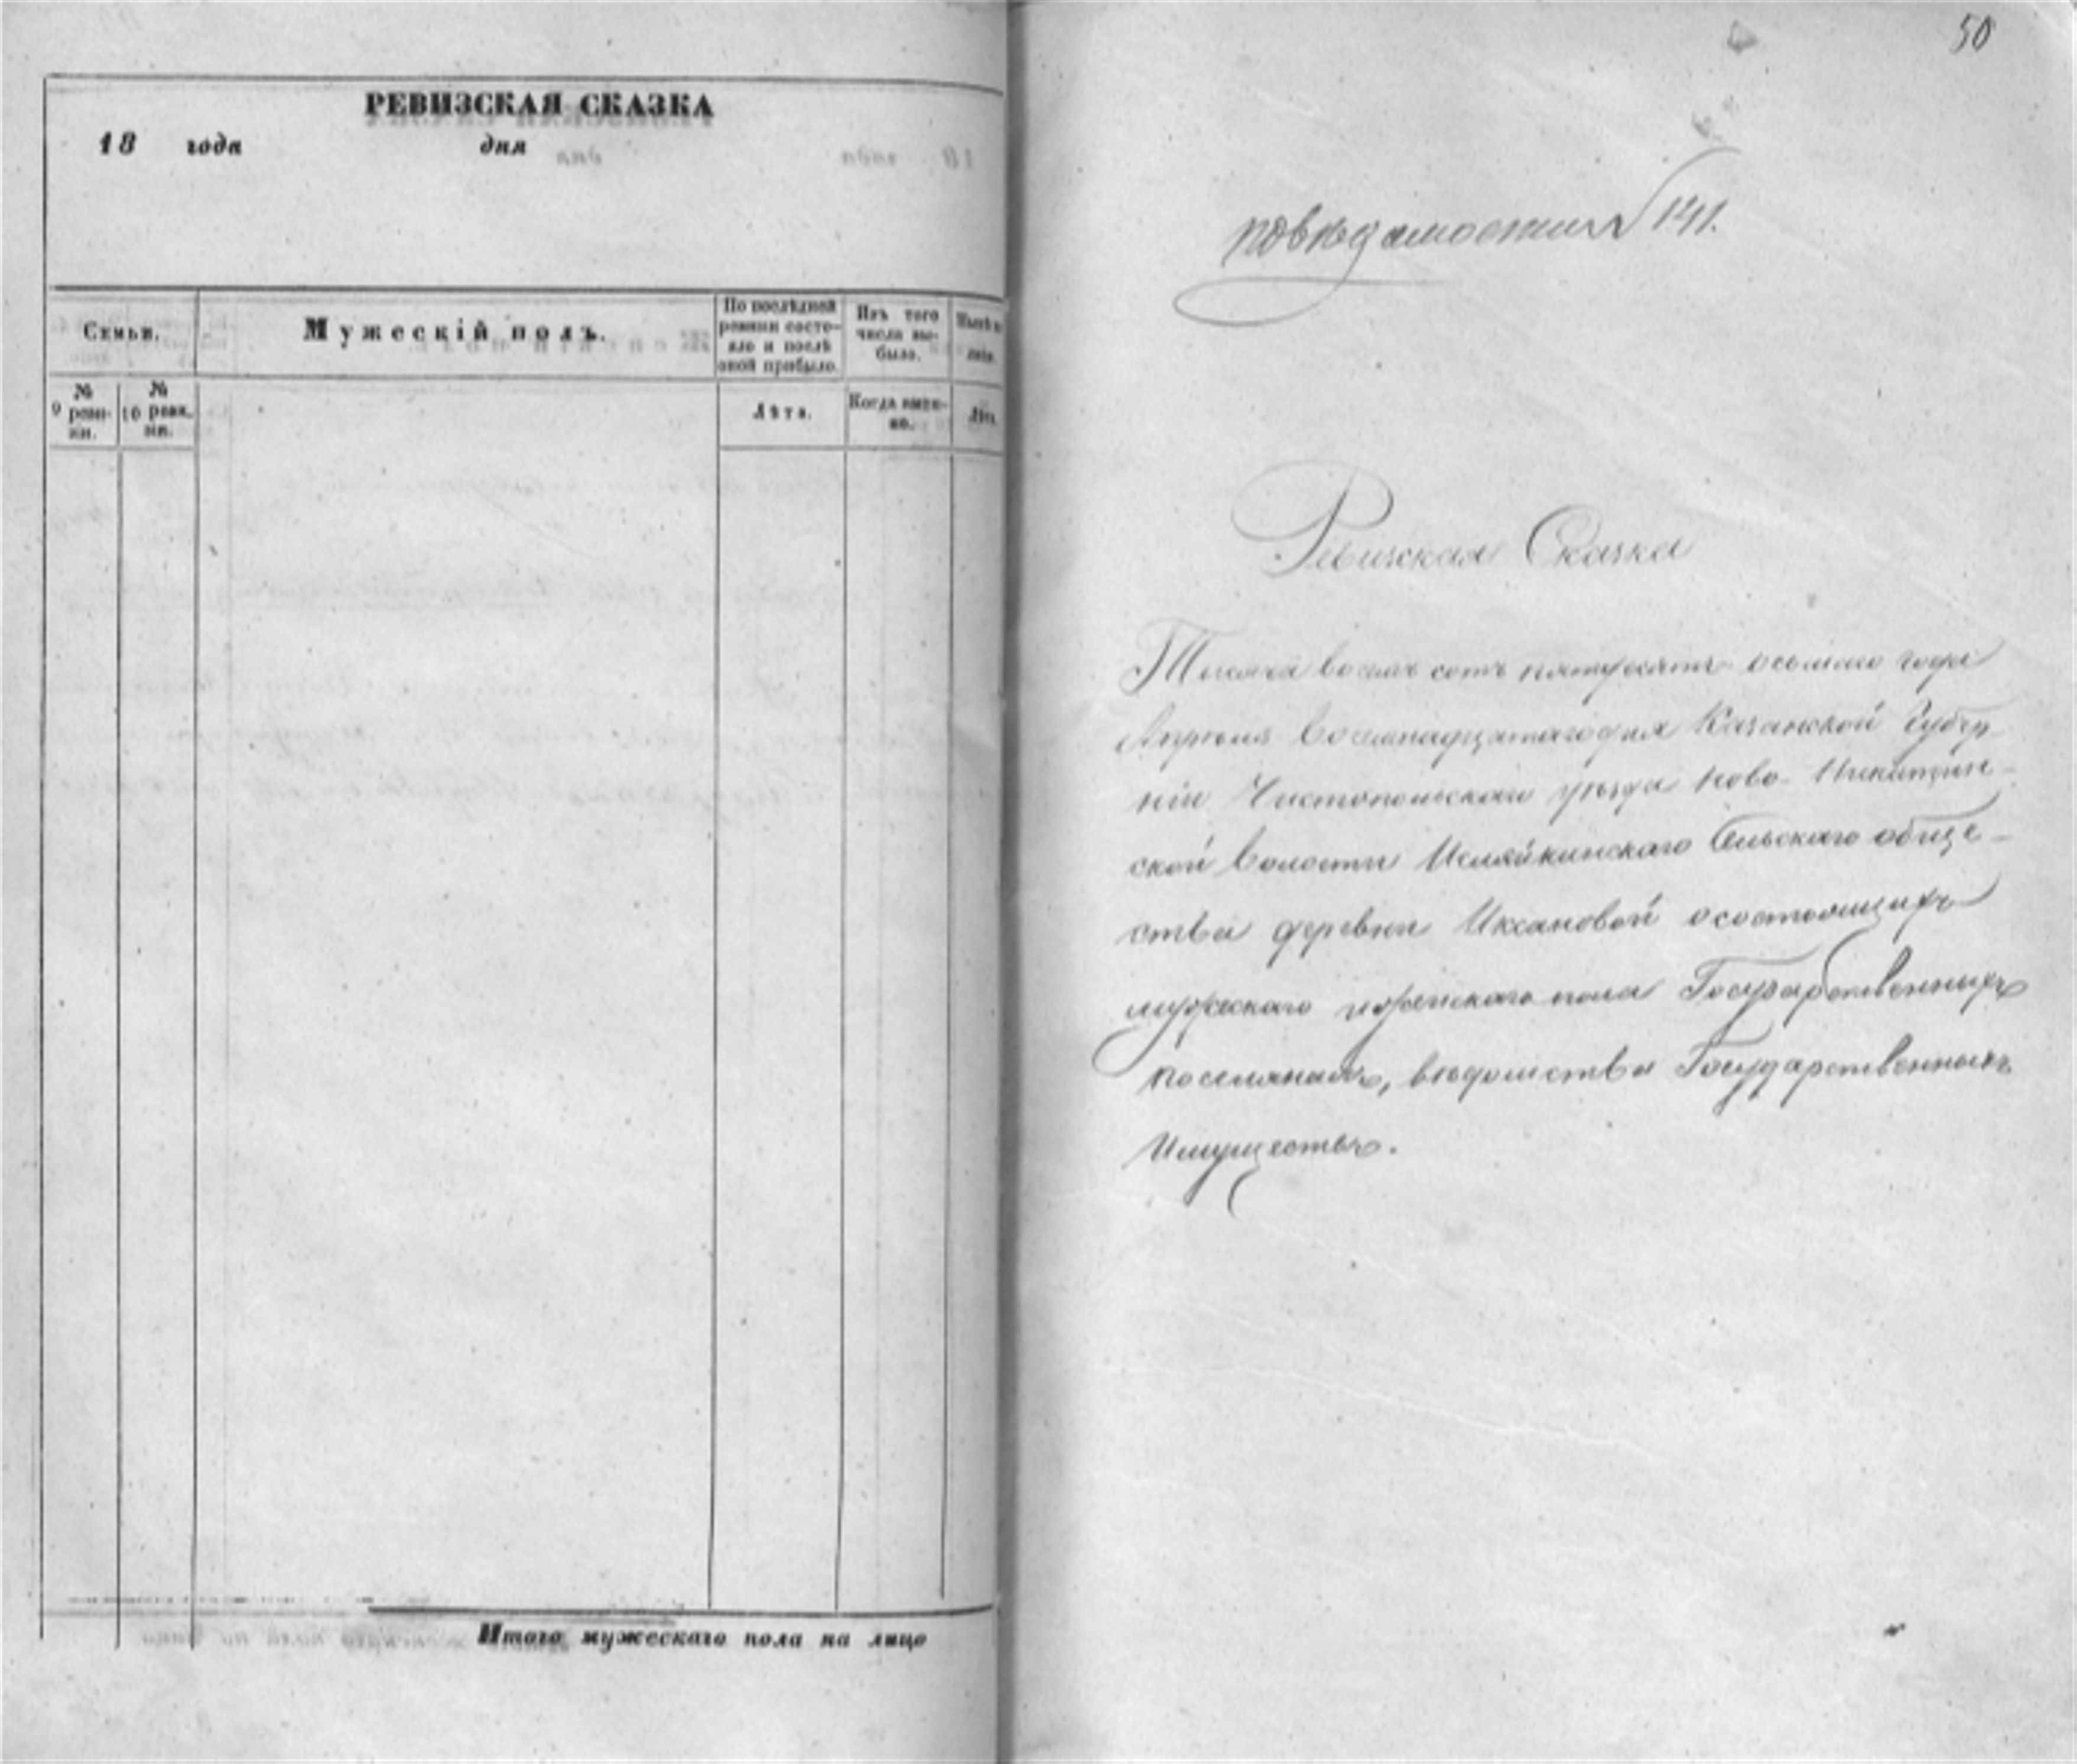 РЕВИЗСКАЯ СКАЗКА
18 года дня
Семьи.
Мужескій полъ.
По послѣдней ревизіи состояло и послѣ оной прибыло.
Изъ того числа выбыло.
№ 9 ревизіи.
№ 10 ревизіи.
Лѣта.
Когда именно.
Лѣта
Итого мужескаго пола на лицо
50
по вѣдомости № 141.
Ревизская Сказка
Тысяча восемь сотъ пятьдесятъ осьмаго года
Апрѣля восемнадцатаго дня Казанской Губер-
ніи Чистопольскаго уѣзда Ново-Никитин-
ской волости Исляйкинскаго Сельскаго обще-
ства деревни Иксановой о состоящихъ
мужескаго и женскаго пола Государственныхъ
поселянахъ, вѣдомства Государственныхъ
Имуществъ.